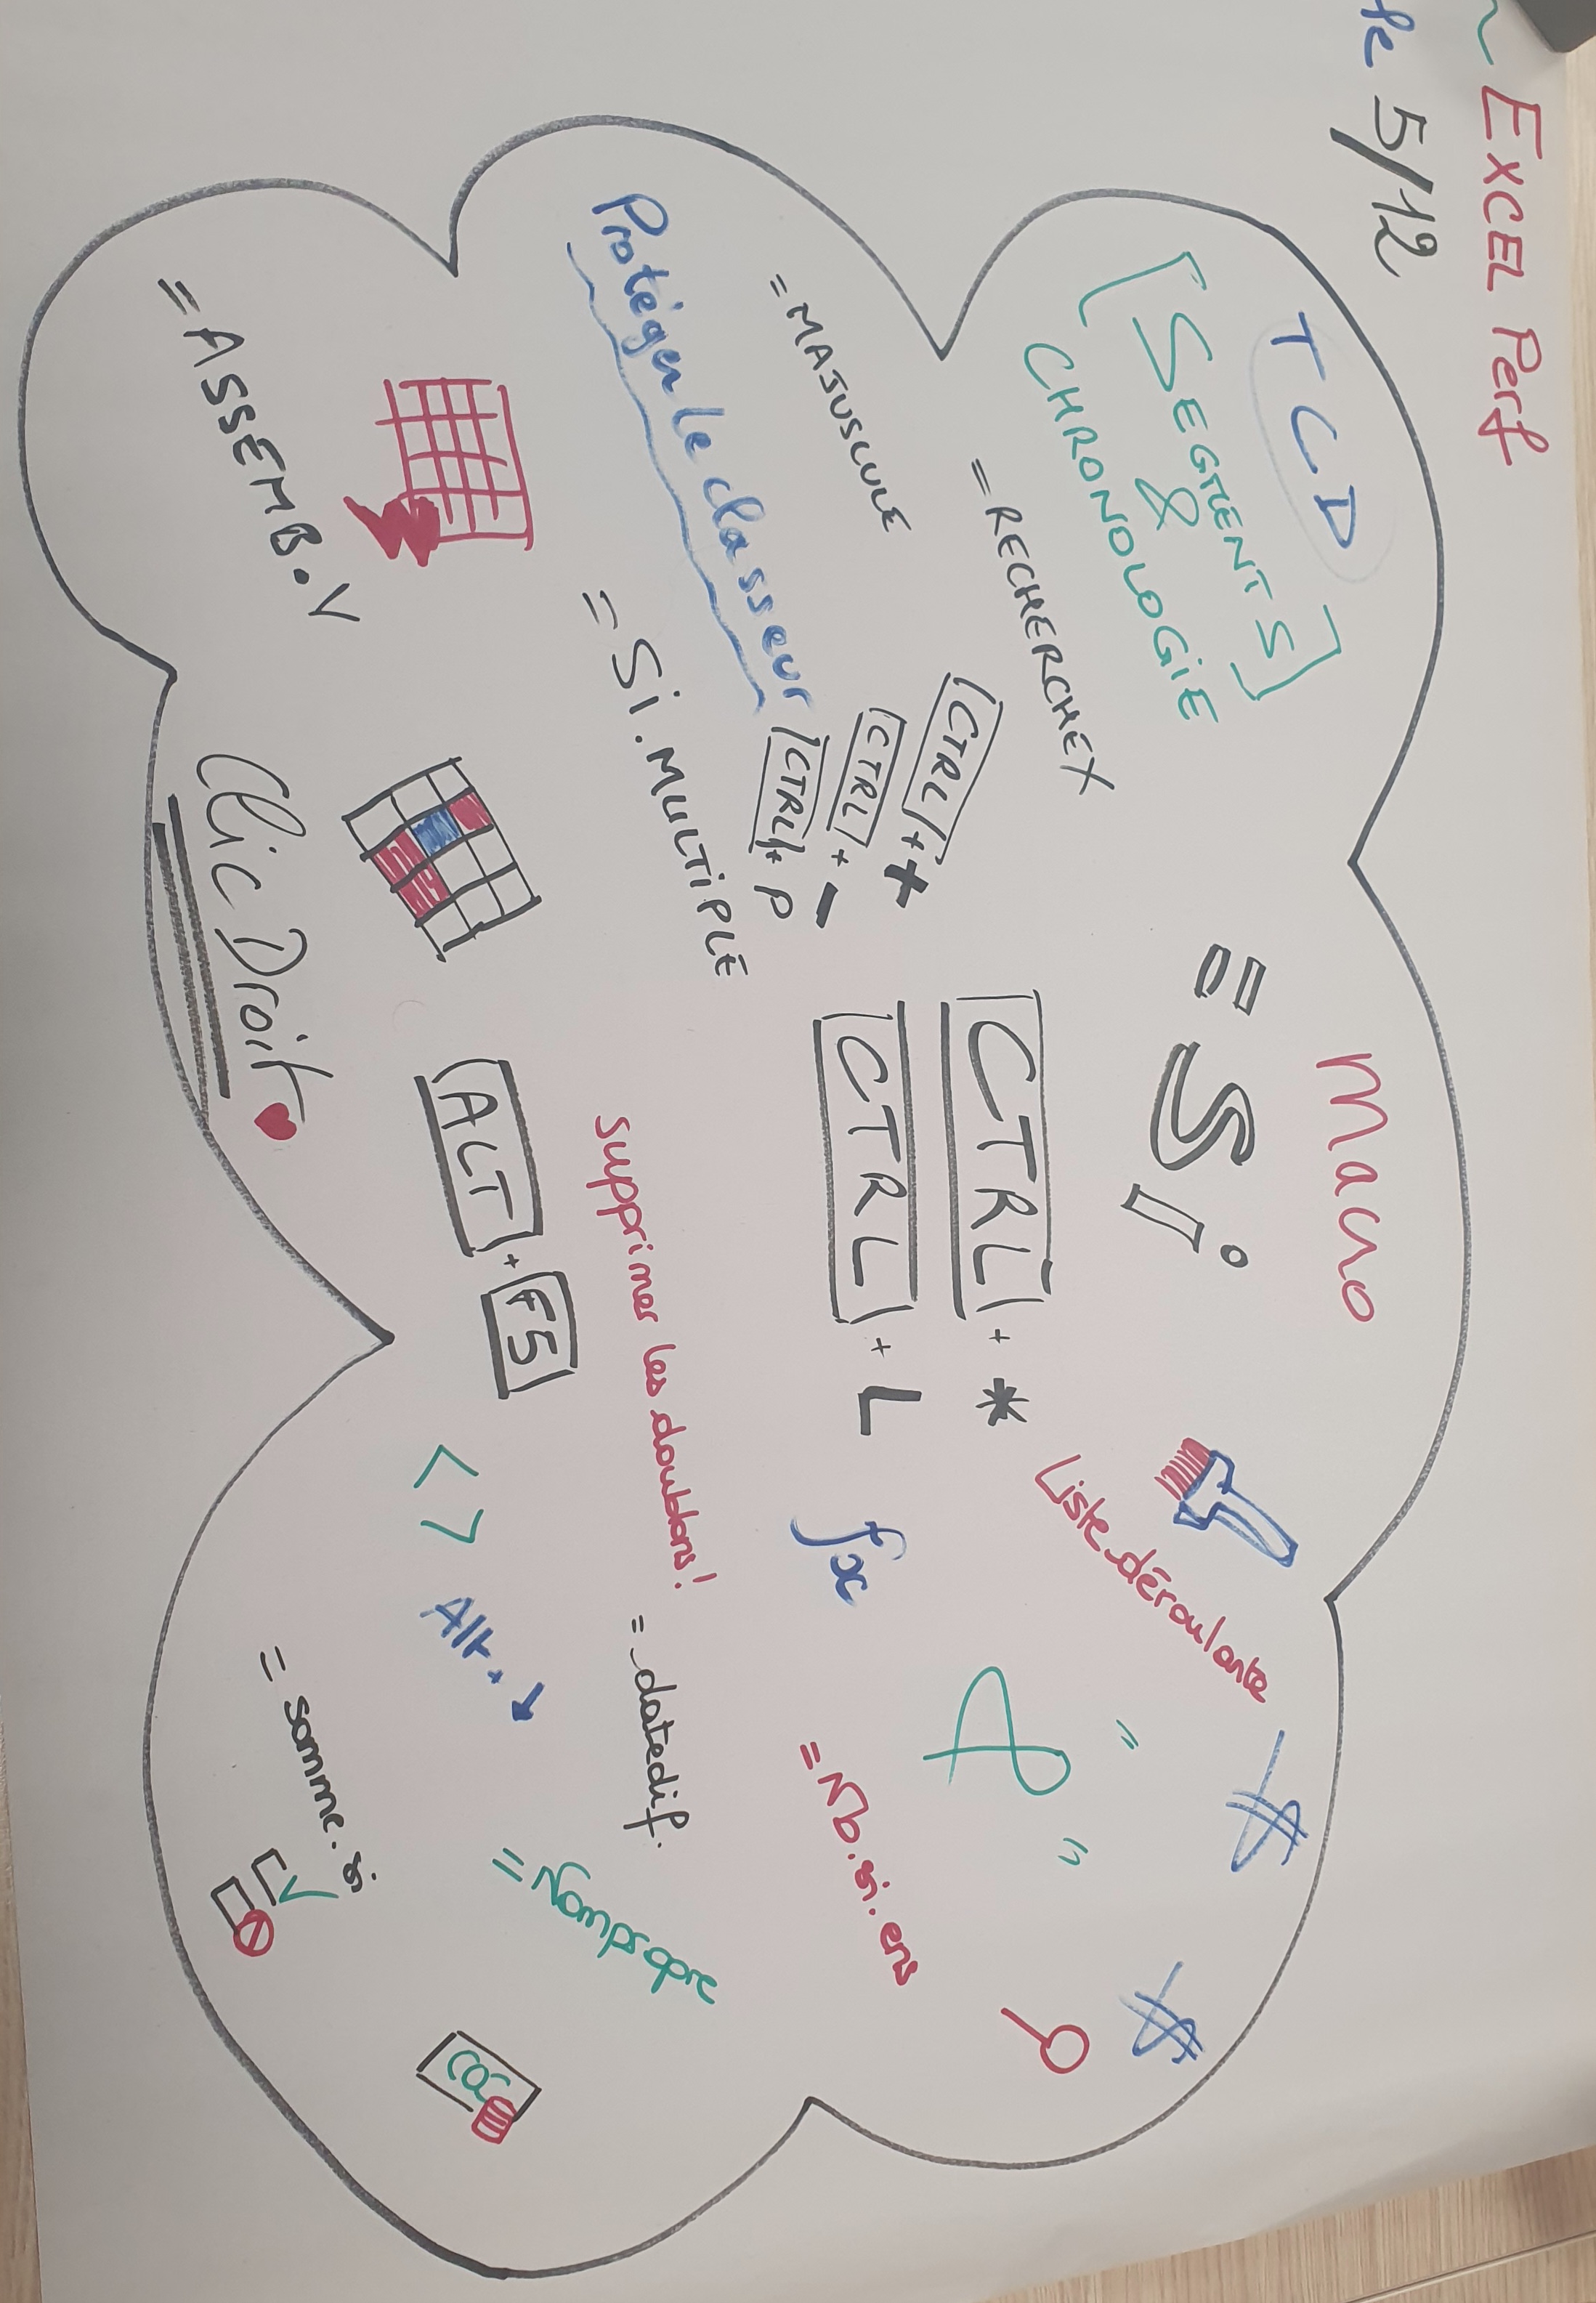 ~ EXCEL Perf
5/12
TCD
[SEGMENTS
&
CHRONOLOGIE]
=RECHERCHEX
=MAJUSCULE
Protéger le classeur
CTRL + +
CTRL + -
CTRL + P
=Si.MULTIPLE
=ASSEMB.V
Clic Droit ♥
Macro
=Si
CTRL + *
CTRL + L
Supprimer les doublons!
ALT + F5
Liste déroulante
fx
" & "
$ $
=Nb.si.ens
=datedif
< >
Alt + ↘
=aujourdhui
=somme.si